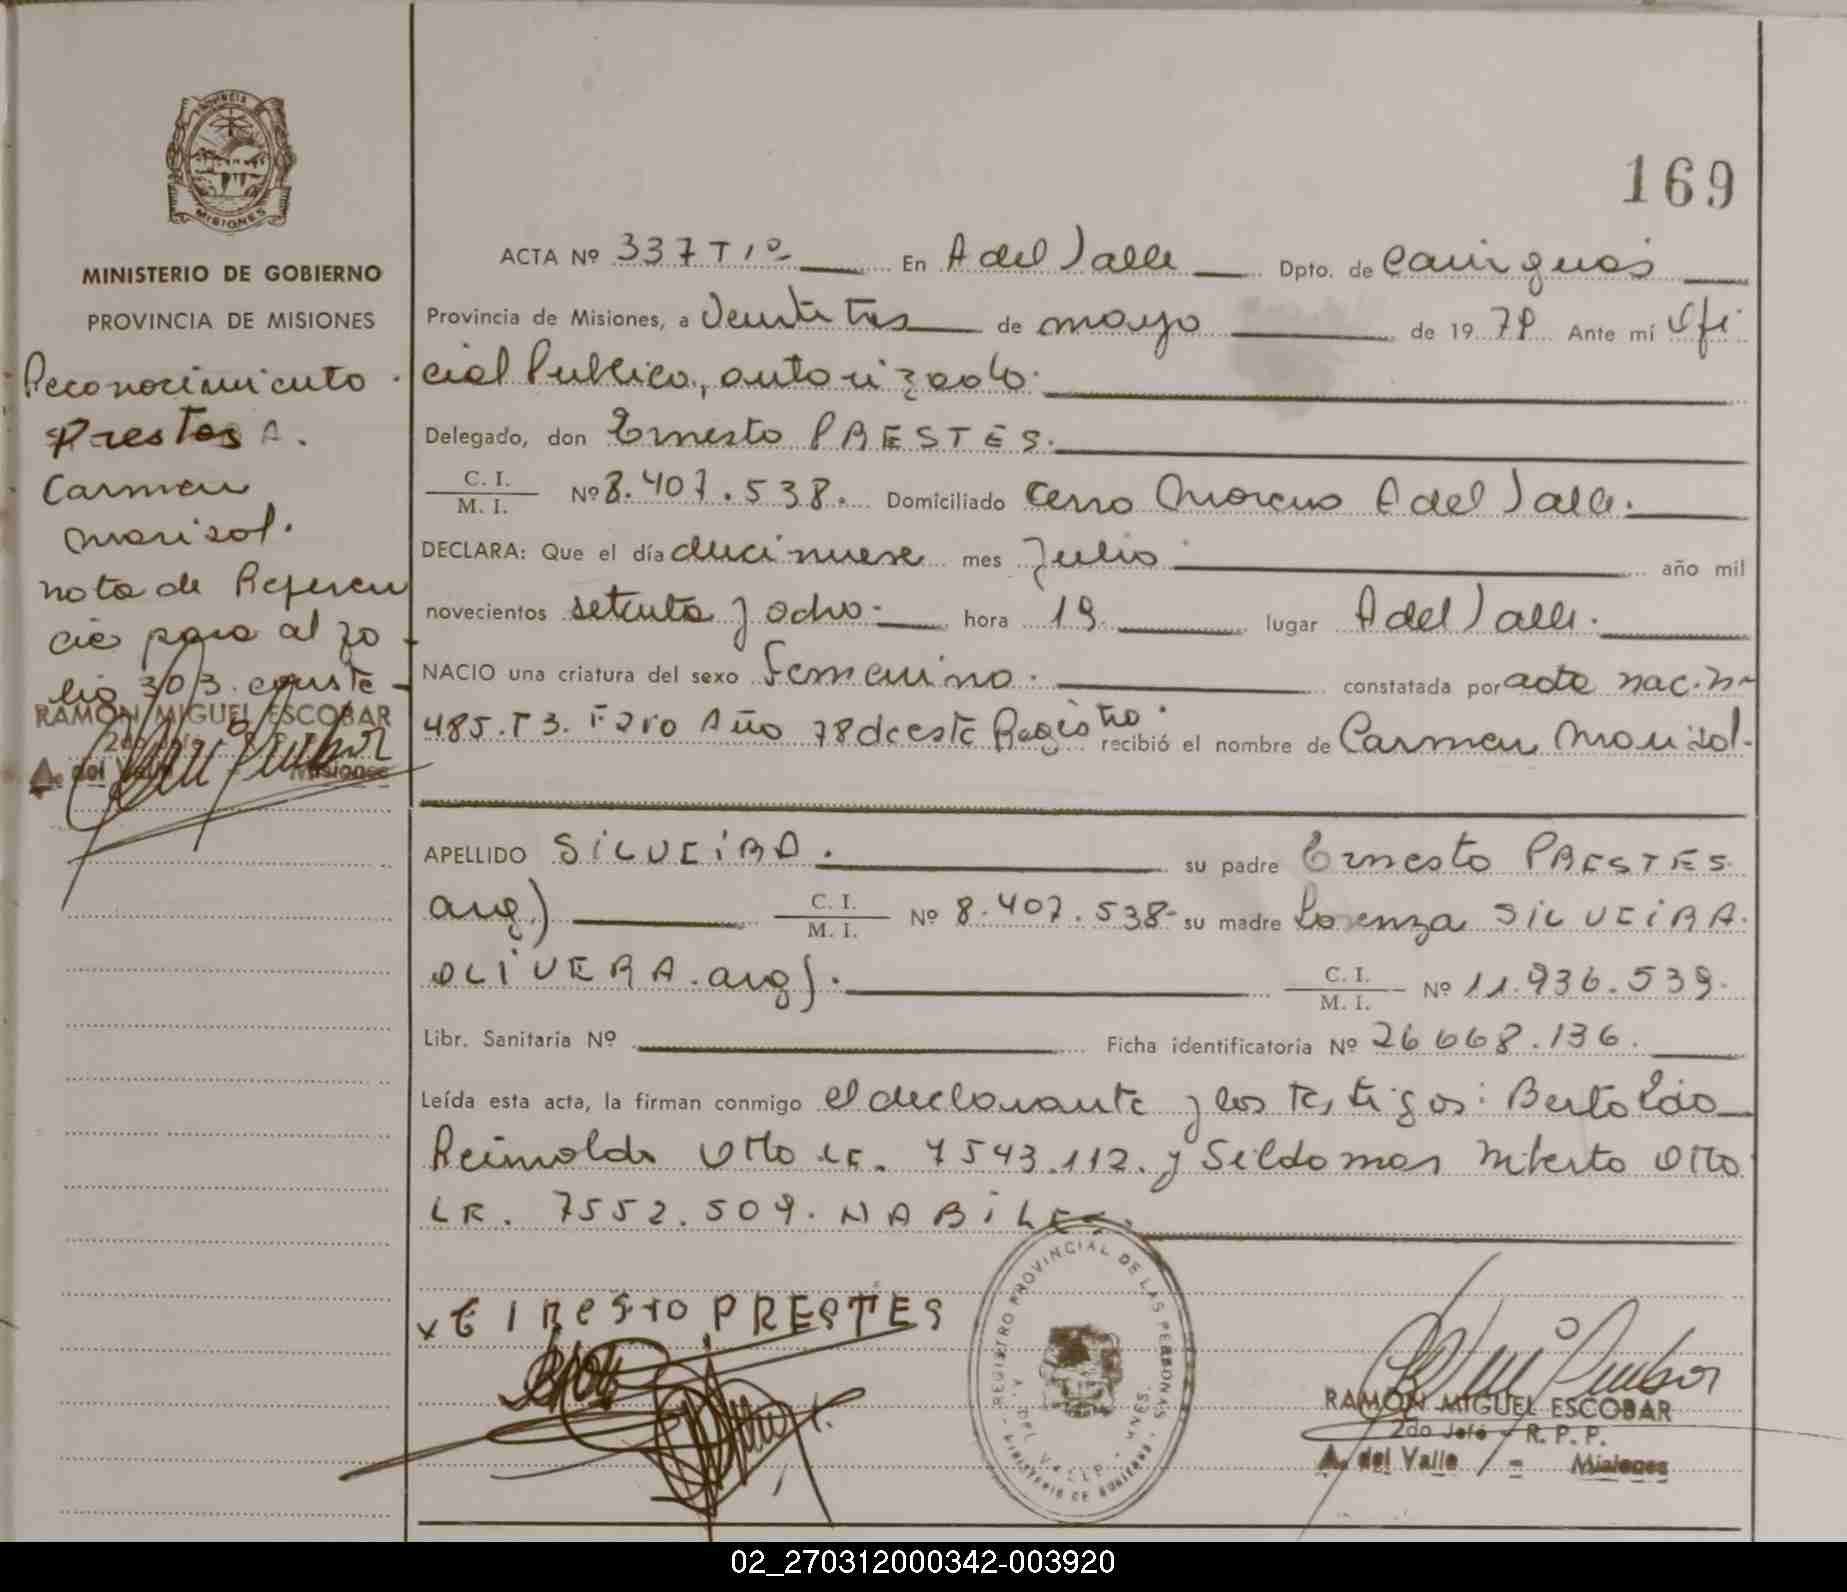 PROVINCIA DE
MISIONES
MINISTERIO DE GOBIERNO
PROVINCIA DE MISIONES
Reconocimiento
Prestes A.
Carmen
Marisol.
nota de Referen
cia para al fo
lio 303. conste
RAMON MIGUEL ESCOBAR
A. del Valle Misiones
169
ACTA Nº 337 T 1º En A del Valle Dpto. de Cainguas
Provincia de Misiones, a Veintitres de mayo de 19 79 Ante mí Ofi
cial Publico, autorizado.
Delegado, don Ernesto PRESTES.
C. I. / M. I. Nº 8.407.538. Domiciliado Cerro Moreno A del Valle.
DECLARA: Que el día diecinueve mes Julio año mil
novecientos setenta y ocho. hora 19 lugar A del Valle.
NACIO una criatura del sexo Femenino. constatada por acta nac. nº
485. T 3. Fº 210 Año 78 de este Registro. recibió el nombre de Carmen Marisol.
APELLIDO SILVEIRA. su padre Ernesto PRESTES
arg) C. I. / M. I. Nº 8.407.538 su madre Lorenza SILVEIRA.
OLIVERA. arg). C. I. / M. I. Nº 11.936.539.
Libr. Sanitaria Nº Ficha identificatoria Nº 26668.136.
Leída esta acta, la firman conmigo el declarante y los testigos: Bertoldo
Reinoldo Otto LE. 7543.112. y Sildomar Alberto Otto
LE. 7552.509. HABILES.
x EIRESTO PRESTES
REGISTRO PROVINCIAL DE LAS PERSONAS
A. DEL VALLE - MNES.
MINISTERIO DE GOBIERNO
RAMON MIGUEL ESCOBAR
2do Jefe - R. P. P.
A. del Valle - Misiones
02_270312000342-003920